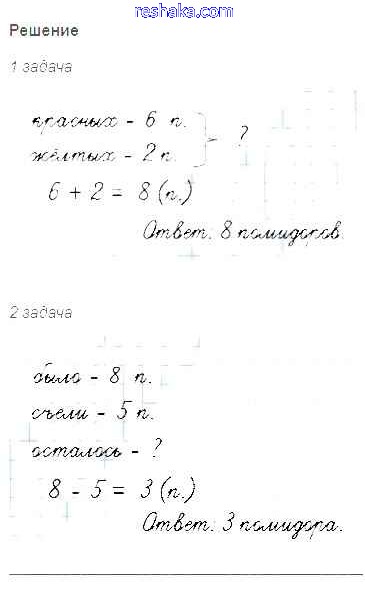 reshaka.com
Решение
1 задача
красных - 6 п.
жёлтых - 2 п.
?
6 + 2 = 8 (п.)
Ответ: 8 помидоров.
2 задача
было - 8 п.
съели - 5 п.
осталось - ?
8 - 5 = 3 (п.)
Ответ: 3 помидора.